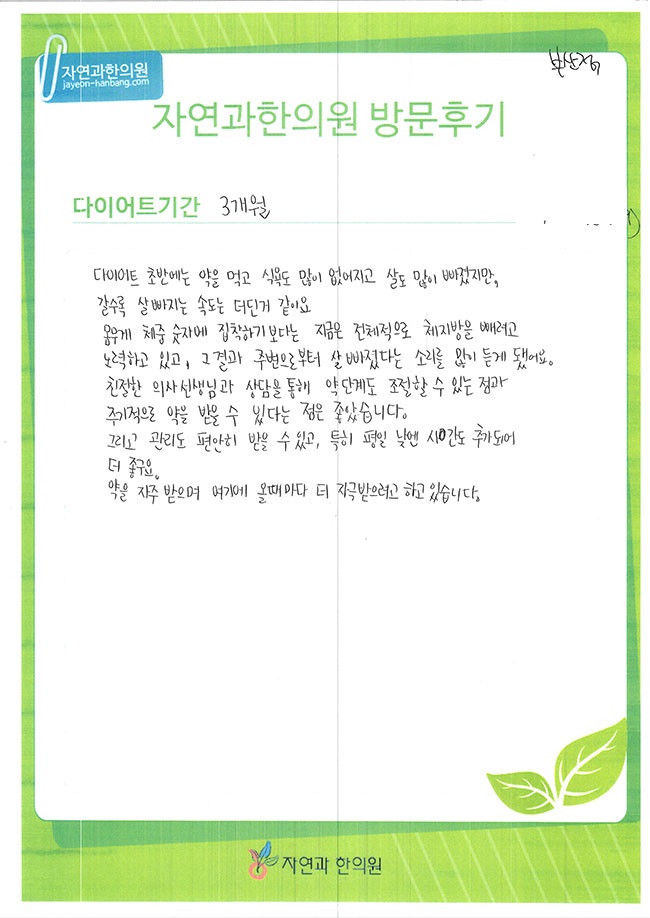 자연과한의원
jayeon-hanbang.com
부산점
자연과한의원 방문후기
다이어트기간 3개월
다이어트 초반에는 약을 먹고 식욕도 많이 없어지고 살도 많이 빠졌지만,
갈수록 살 빠지는 속도는 더딘거 같아요
체중 숫자에 집착하기보다는 지금은 전체적으로 체지방을 빼려고
노력하고 있고, 그결과 주변으로부터 살 빠졌다는 소리를 많이 듣게 됐어요.
친절한 의사선생님과 상담을 통해 약단계도 조절할 수 있는 점과
주기적으로 약을 받을 수 있다는 점은 좋았습니다.
그리고 관리도 편안히 받을 수 있고, 특히 평일 낮엔 시간도 추가되어
더 좋구요.
약을 자주 받으며 여기에 올때마다 더 자극받으려고 하고 있습니다.
자연과 한의원